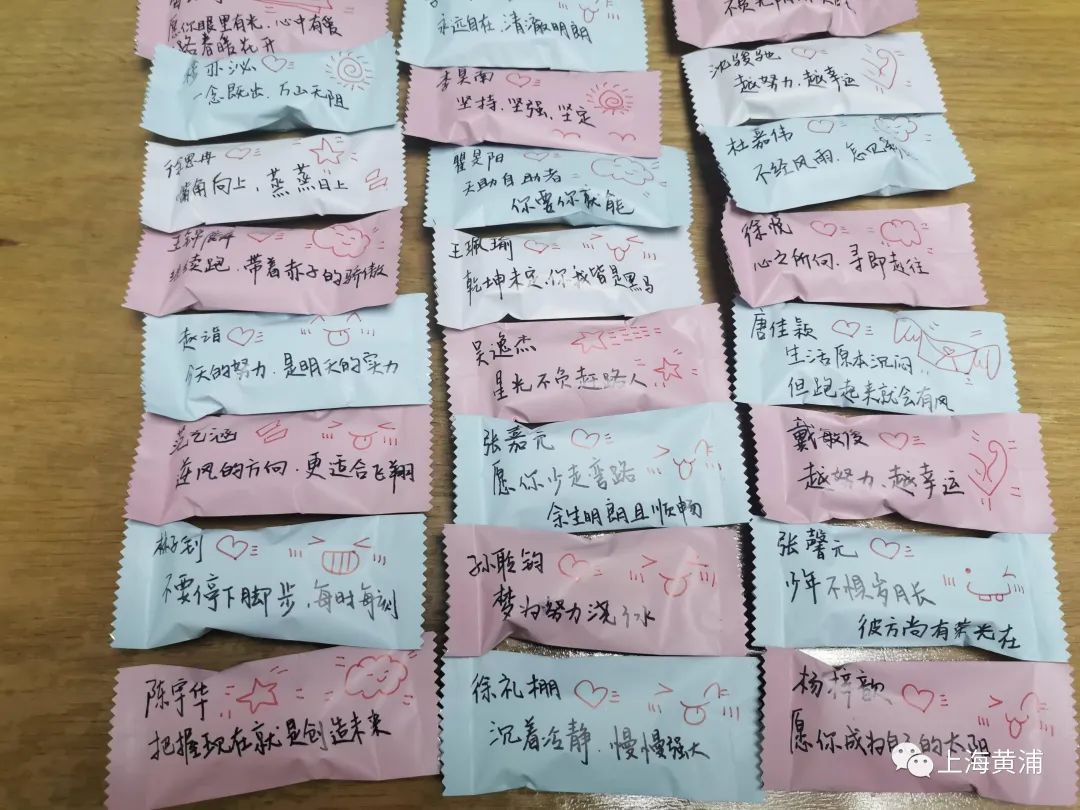 愿你眼里有光，心中有暖
一路春暖花开
亦泌
一念既出，万山无阻
嘴角向上，蒸蒸日上
继续跑，带着赤子的骄傲
赵诣
今天的努力，是明天的实力
范艺涵
逆风的方向，更适合飞翔
林子钊
不要停下脚步，每时每刻
陈宇华
把握现在就是创造未来
永远自在，清澈明朗
李昊南
坚持、坚强、坚定
瞿昊阳
天助自助者
你要你就能
王珮瑜
乾坤未定，你我皆是黑马
吴逸杰
星光不负赶路人
张嘉元
愿你少走弯路
余生明朗且顺畅
孙聆钧
梦为努力浇了水
徐礼棚
沉着冷静，慢慢强大
沈骏驰
越努力，越幸运
杜嘉伟
不经风雨，怎见
徐悦
心之所向，寻即越往
唐佳颖
生活原本沉闷
但跑起来就会有风
戴敏俊
越努力，越幸运
张馨元
少年不惧岁月长
彼方尚有荣光在
杨梓歆
愿你成为自己的太阳
上海黄浦